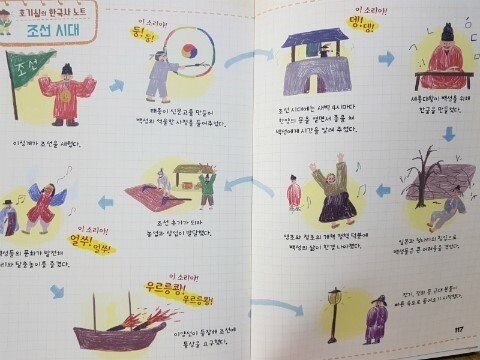 호기심이 한국사 노트
조선 시대
조선
이성계가 조선을 세웠다.
이 소리야!
둥! 둥!
태종이 신문고를 만들어
백성의 억울한 사정을 들어주었다.
이 소리야!
뎅! 뎅!
조선 시대에는 새벽 4시마다
한양의 문을 열면서 종을 쳐
백성에게 시간을 알려 주었다.
세종대왕이 백성을 위해
한글을 만들었다.
일본과 청나라의 침입으로
백성들은 큰 어려움을 겪었다.
영조와 정조의 개혁 정책 덕분에
백성의 삶이 한결 나아졌다.
조선 후기가 되자
농업과 상업이 발달했다.
이 소리야!
얼쑤! 얼쑤!
백성들의 문화가 발전해
탈춤놀이를 즐겼다.
이 소리야!
우르릉쾅!
우르릉쾅!
이양선이 등장해 조선에
통상을 요구했다.
전기, 전차 등 근대 문물이
빠른 속도로 들어오기 시작했다.
117